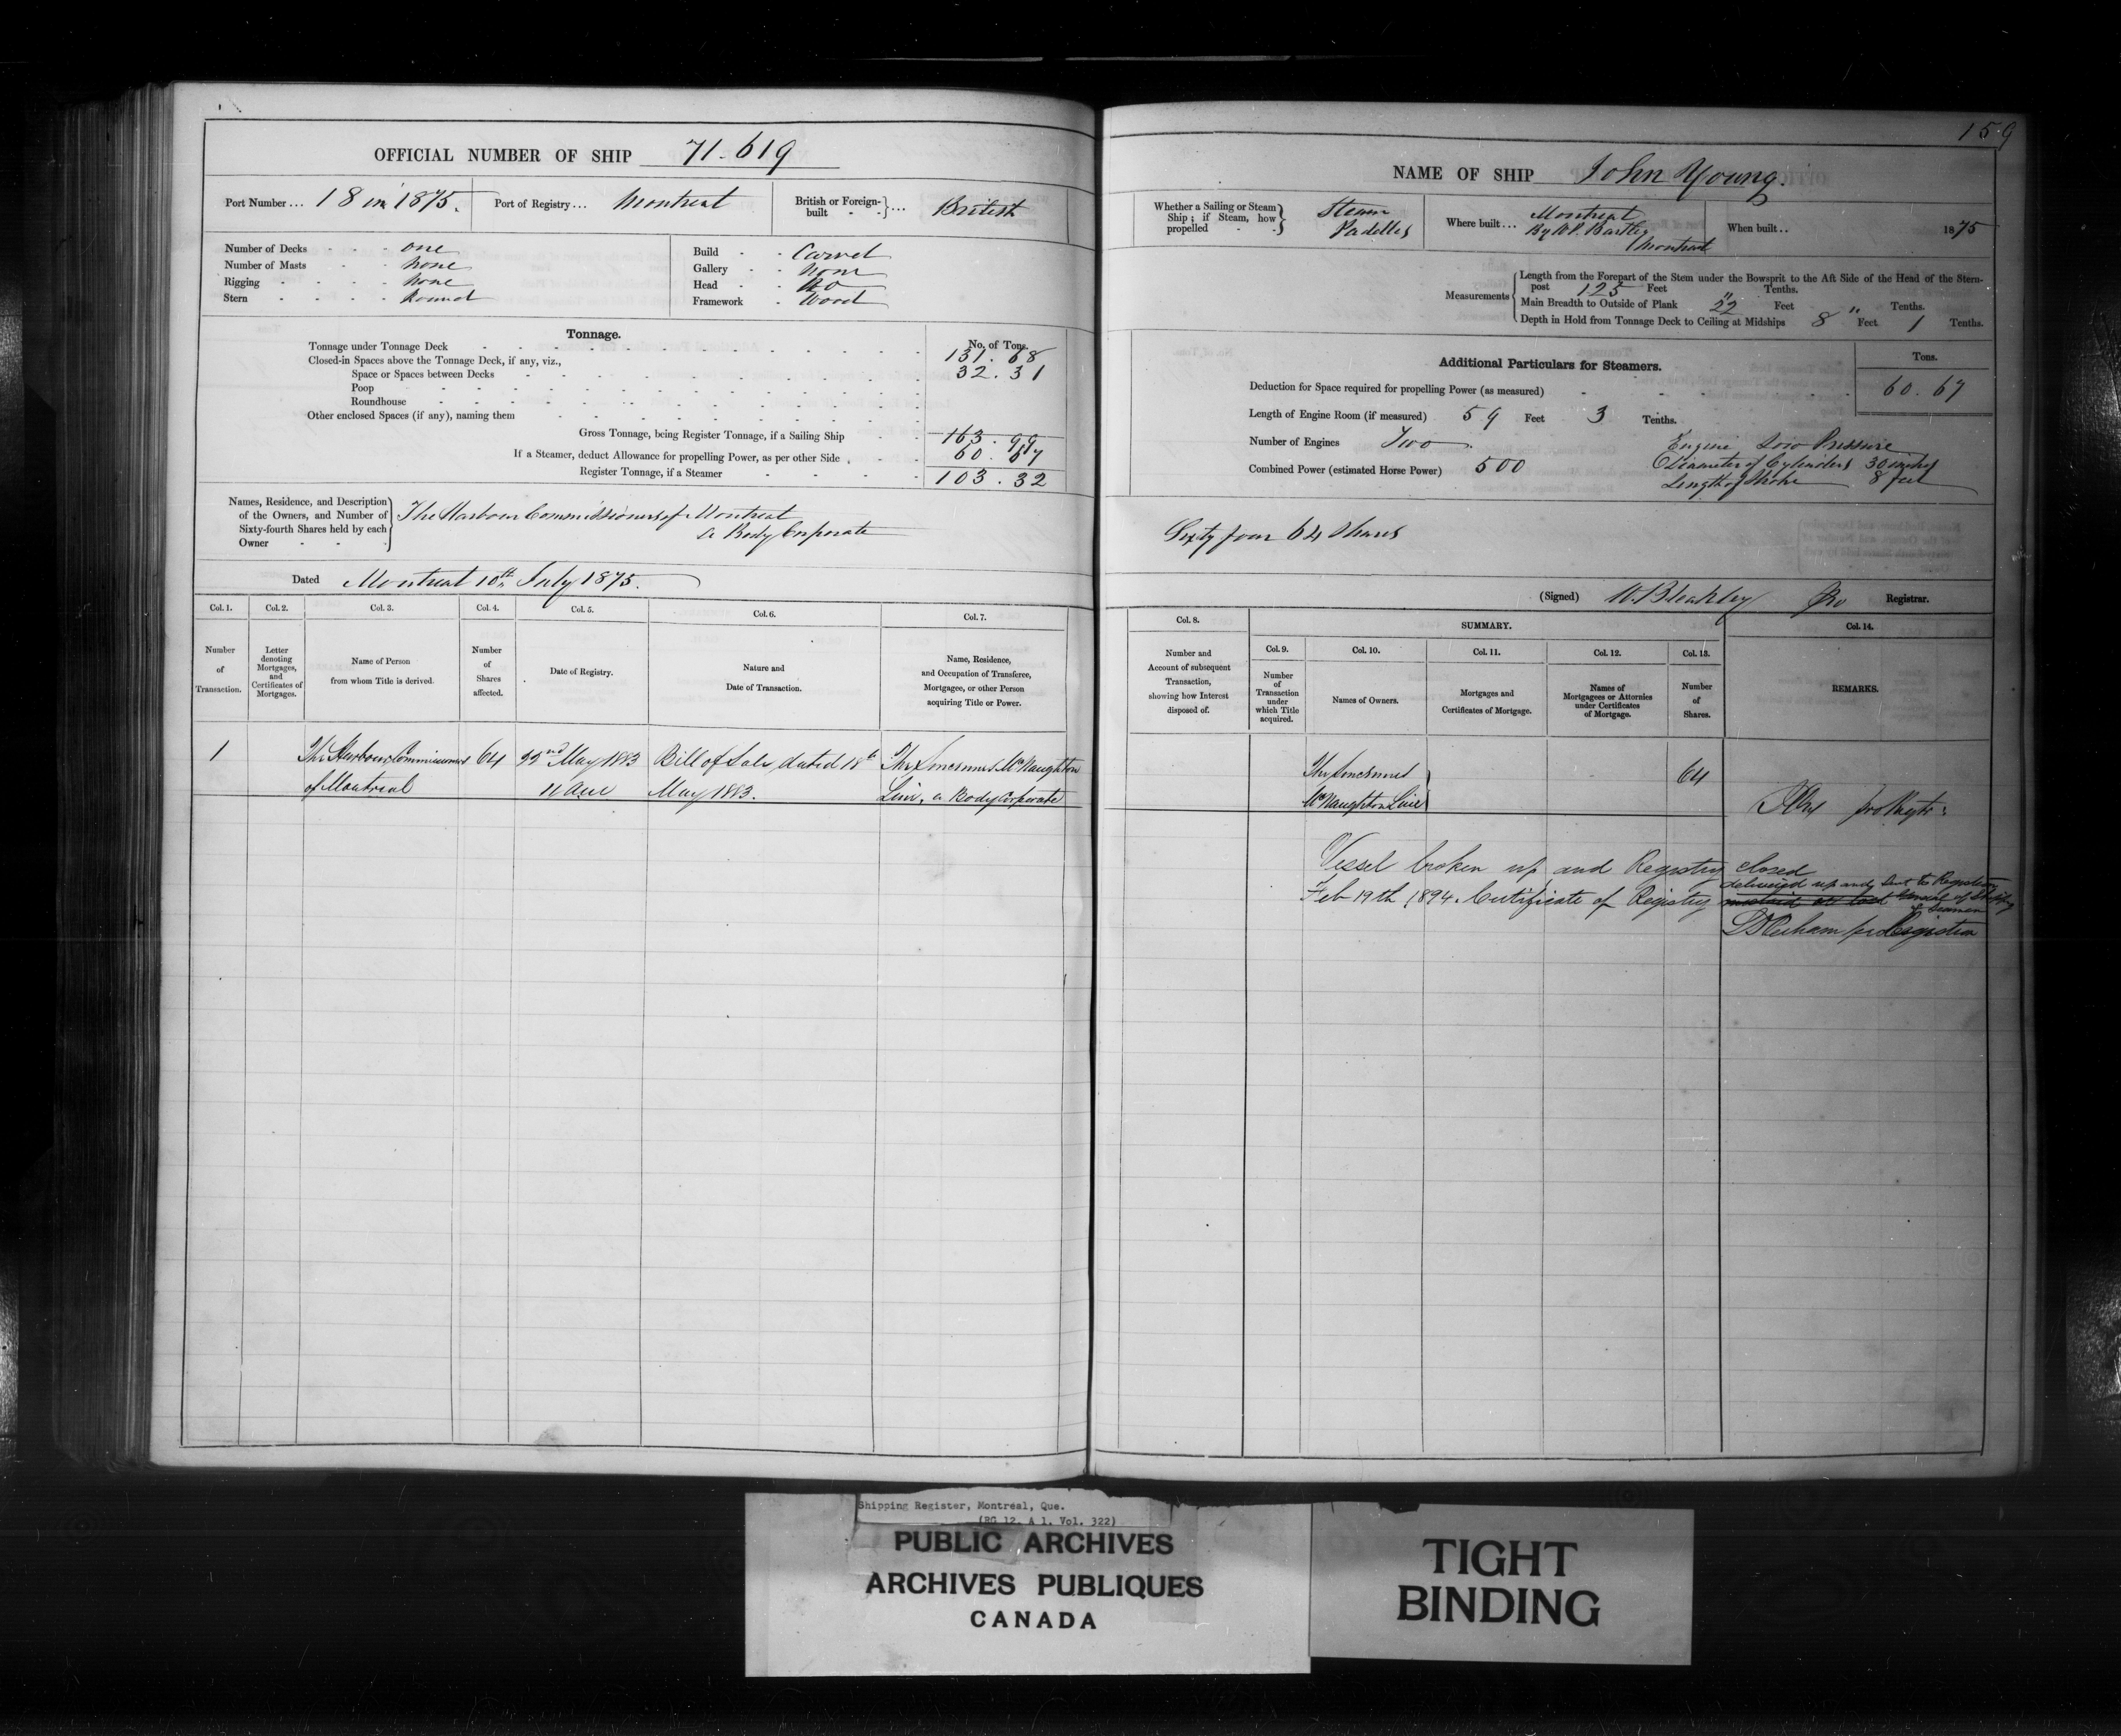 159
OFFICIAL NUMBER OF SHIP 71.619
Port Number... 18 in 1875. Port of Registry... Montreal British or Foreign-built - -}... British
Number of Decks - - - one
Number of Masts - - - None
Rigging - - - - None
Stern - - - - Round
Build - - Carvel
Gallery - - None
Head - - No
Framework - Wood
Tonnage. No. of Tons.
Tonnage under Tonnage Deck 131.68
Closed-in Spaces above the Tonnage Deck, if any, viz.,
Space or Spaces between Decks 32.31
Poop
Roundhouse
Other enclosed Spaces (if any), naming them
Gross Tonnage, being Register Tonnage, if a Sailing Ship 163.99
If a Steamer, deduct Allowance for propelling Power, as per other Side 60.67
Register Tonnage, if a Steamer 103.32
Names, Residence, and Description
of the Owners, and Number of
Sixty-fourth Shares held by each
Owner
The Harbour Commissioners of Montreal
a Body Corporate
Dated Montreal 10th July 1875.
Col. 1. Col. 2. Col. 3. Col. 4. Col. 5. Col. 6. Col. 7.
Number of Transaction.
Letter denoting Mortgages, and Certificates of Mortgages.
Name of Person from whom Title is derived.
Number of Shares affected.
Date of Registry.
Nature and Date of Transaction.
Name, Residence, and Occupation of Transferee, Mortgagee, or other Person acquiring Title or Power.
1 The Harbour Commissioners 64 22nd May 1883 Bill of Sale, dated 18th The Sincennes McNaughton
of Montreal 11 am May 1883. Line, a Body Corporate
NAME OF SHIP John Young.
Whether a Sailing or Steam
Ship; if Steam, how
propelled
Steam
Paddles
Where built... Montreal
By W.P. Bartley
Montreal
When built.. 1875
Measurements
Length from the Forepart of the Stem under the Bowsprit to the Aft Side of the Head of the Stern-
post 125 Feet " Tenths.
Main Breadth to Outside of Plank 22 Feet " Tenths.
Depth in Hold from Tonnage Deck to Ceiling at Midships 8 Feet 1 Tenths.
Additional Particulars for Steamers. Tons.
Deduction for Space required for propelling Power (as measured) 60.67
Length of Engine Room (if measured) 59 Feet 3 Tenths.
Number of Engines Two
Combined Power (estimated Horse Power) 500
Engine Low Pressure
Diameter of Cylinders 30 inches
Length of Stroke 8 feet
Sixty four 64 Shares
(Signed) W. Bleakley Pro Registrar.
Col. 8. SUMMARY. Col. 14.
Col. 9. Col. 10. Col. 11. Col. 12. Col. 13.
Number and Account of subsequent Transaction, showing how Interest disposed of.
Number of Transaction under which Title acquired.
Names of Owners.
Mortgages and Certificates of Mortgage.
Names of Mortgagees or Attornies under Certificates of Mortgage.
Number of Shares.
REMARKS.
The Sincennes 64
McNaughton Line
pro Regtr:
Vessel broken up and Registry closed
Feb 19th 1894. Certificate of Registry delivered up and sent to Registrar
General of Shipping
& Seamen
pro Registrar
Shipping Register, Montreal, Que.
(RG 12, A 1, Vol. 322)
PUBLIC ARCHIVES
ARCHIVES PUBLIQUES
CANADA
TIGHT
BINDING